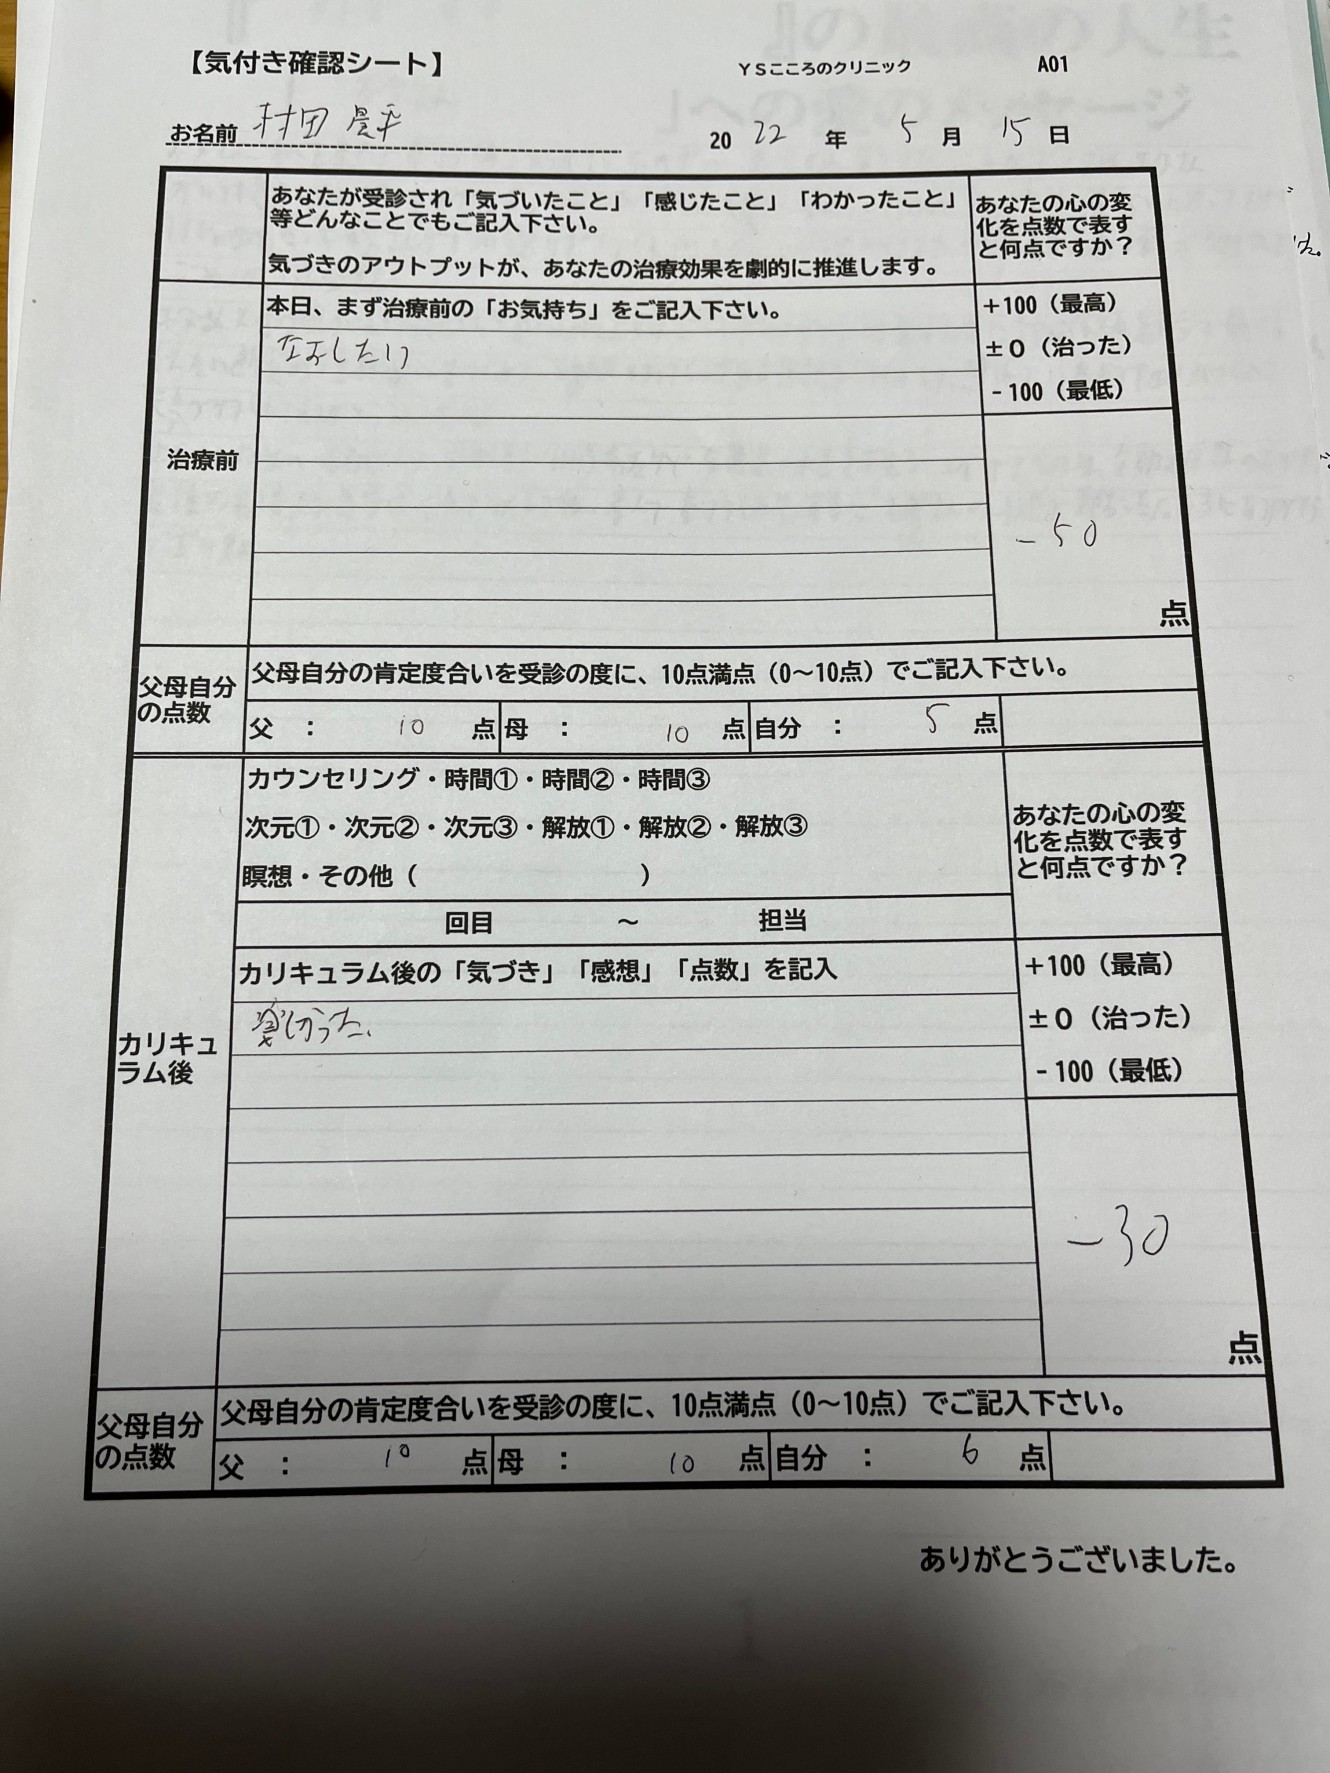 【気付き確認シート】 YSこころのクリニック A01
お名前 村田 晃平 2022年 5月 15日
あなたが受診され「気づいたこと」「感じたこと」「わかったこと」
等どんなことでもご記入下さい。
気づきのアウトプットが、あなたの治療効果を劇的に推進します。
あなたの心の変
化を点数で表す
と何点ですか？
治療前
本日、まず治療前の「お気持ち」をご記入下さい。
なおしたい
+100（最高）
±0（治った）
-100（最低）
-50
点
父母自分
の点数
父母自分の肯定度合いを受診の度に、10点満点（0～10点）でご記入下さい。
父 ： 10 点 母 ： 10 点 自分 ： 5 点
カリキュ
ラム後
カウンセリング・時間①・時間②・時間③
次元①・次元②・次元③・解放①・解放②・解放③
瞑想・その他（ ）
回目 ～ 担当
あなたの心の変
化を点数で表す
と何点ですか？
カリキュラム後の「気づき」「感想」「点数」を記入
楽しかった。
+100（最高）
±0（治った）
-100（最低）
-30
点
父母自分
の点数
父母自分の肯定度合いを受診の度に、10点満点（0～10点）でご記入下さい。
父 ： 10 点 母 ： 10 点 自分 ： 6 点
ありがとうございました。